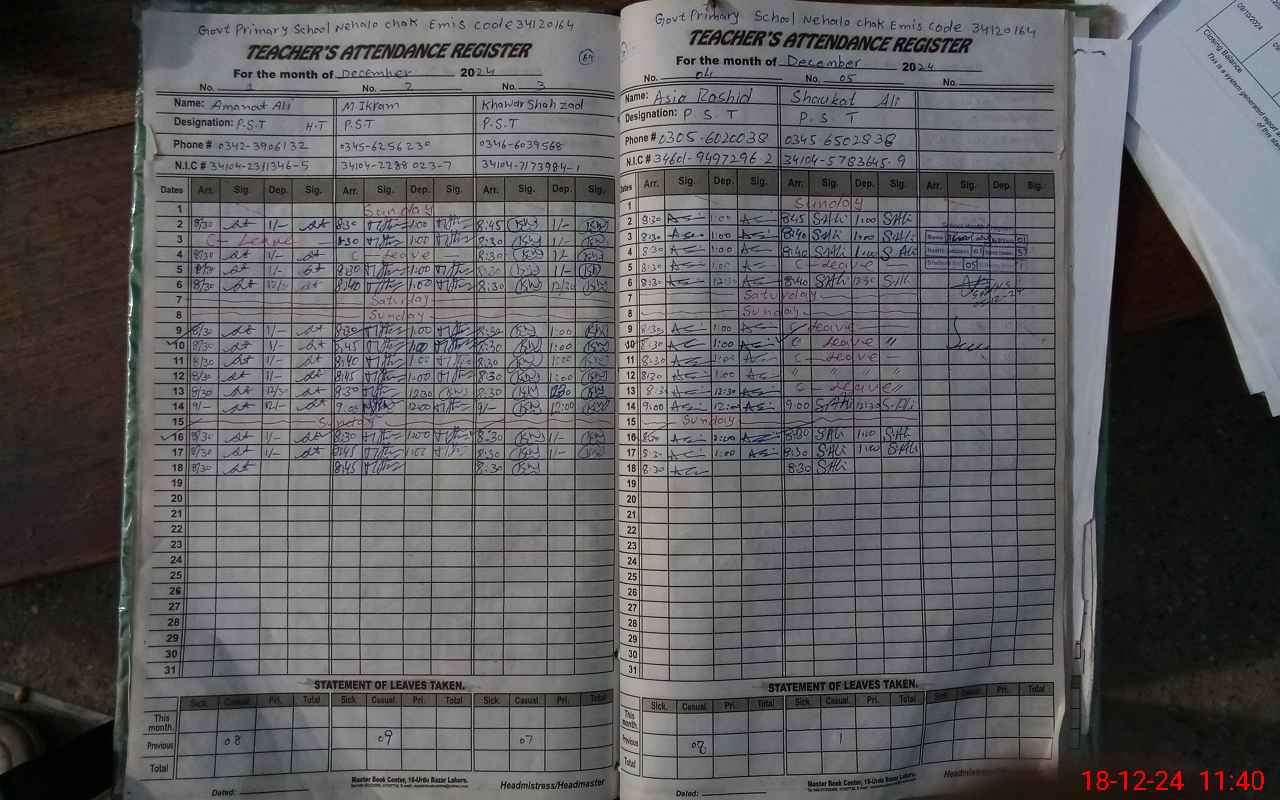 Govt Primary School Nehalo chak Emis Code 34120164
TEACHER'S ATTENDANCE REGISTER
For the month of December 2024
No. 1 No. 2 No. 3
Name: Amanat Ali M Ikram Khawar Shahzad
Designation: P.S.T H.T P.S.T P.S.T
Phone # 0342-3906132 0345-6256230 0346-6039568
N.I.C # 34104-2311346-5 34104-2288023-7 34104-7173984-1
Dates Arr. Sig. Dep. Sig. Arr. Sig. Dep. Sig. Arr. Sig. Dep. Sig.
1 Sunday
2 8/30 1/- 8:30 1:00 8:45 1/-
3 C - Leave 8:30 1:00 8:30 1/-
4 8/30 1/- C - Leave 8:30 1/-
5 8/30 1/- 8:30 1:00 8:30 1/-
6 8/30 12/30 8:40 1:00 8:30 12/30
7 Saturday
8 Sunday
9 8/30 1/- 8:30 1:00 8:30 1:00
10 8/30 1/- 8:45 1:00 8:30 1:00
11 8/30 1/- 8:40 1:00 8:30 1:00
12 8/30 1/- 8:45 1:00 8:30 1:00
13 8/30 12/30 8:30 12:30 8:30
14 9/- 12/- 9:00 12:00 9/- 12:00
15 Sunday
16 8/30 1/- 8:30 1:00 8:30 1/-
17 8/30 1/- 8:45 1:00 8:30 1/-
18 8/30 8:45 8:30
19
20
21
22
23
24
25
26
27
28
29
30
31
STATEMENT OF LEAVES TAKEN.
Sick. Casual. Pri. Total Sick. Casual. Pri. Total Sick. Casual. Pri. Total
This month.
Previous 08 09 07
Total
Master Book Center, 16-Urdu Bazar Lahore.
Dated: Headmistress/Headmaster
Govt Primary School Nehalo chak Emis Code 34120164
TEACHER'S ATTENDANCE REGISTER
For the month of December 2024
No. 04 No. 05 No.
Name: Asia Rashid Shaukat Ali
Designation: P.S.T P.S.T
Phone # 0305-6020038 0345 6502838
N.I.C # 34601-9497296-2 34104-5783645-9
Dates Arr. Sig. Dep. Sig. Arr. Sig. Dep. Sig. Arr. Sig. Dep. Sig.
1 Sunday
2 8:30 1:00 8:45 SAli 1:00 SAli
3 8:30 1:00 8:40 SAli 1:00 SAli
4 8:30 1:00 8:40 SAli 1:00 SAli
5 8:30 1:00 C - Leave
6 8:30 12:30 8:40 SAli 12:30 SAli
7 Saturday
8 Sunday
9 8:30 1:00 C Leave
10 8:30 1:00 C Leave "
11 8:30 1:00 C - Leave -
12 8:30 1:00 " " " "
13 8:30 12:30 C - Leave
14 9:00 12:00 9:00 SAli 12:30 SAli
15 Sunday
16 8:30 1:00 8:30 SAli 1:00 SAli
17 8:30 1:00 8:30 SAli 1:00 SAli
18 8:30 8:30 SAli
19
20
21
22
23
24
25
26
27
28
29
30
31
STATEMENT OF LEAVES TAKEN.
Sick. Casual. Pri. Total Sick. Casual. Pri. Total Sick. Casual. Pri. Total
This month.
Previous 08 1
Total
Master Book Center, 16-Urdu Bazar Lahore.
Dated: Headmistress/Headmaster
09/10/2024
Closing Balance
This is a system generated report
18-12-24 11:40